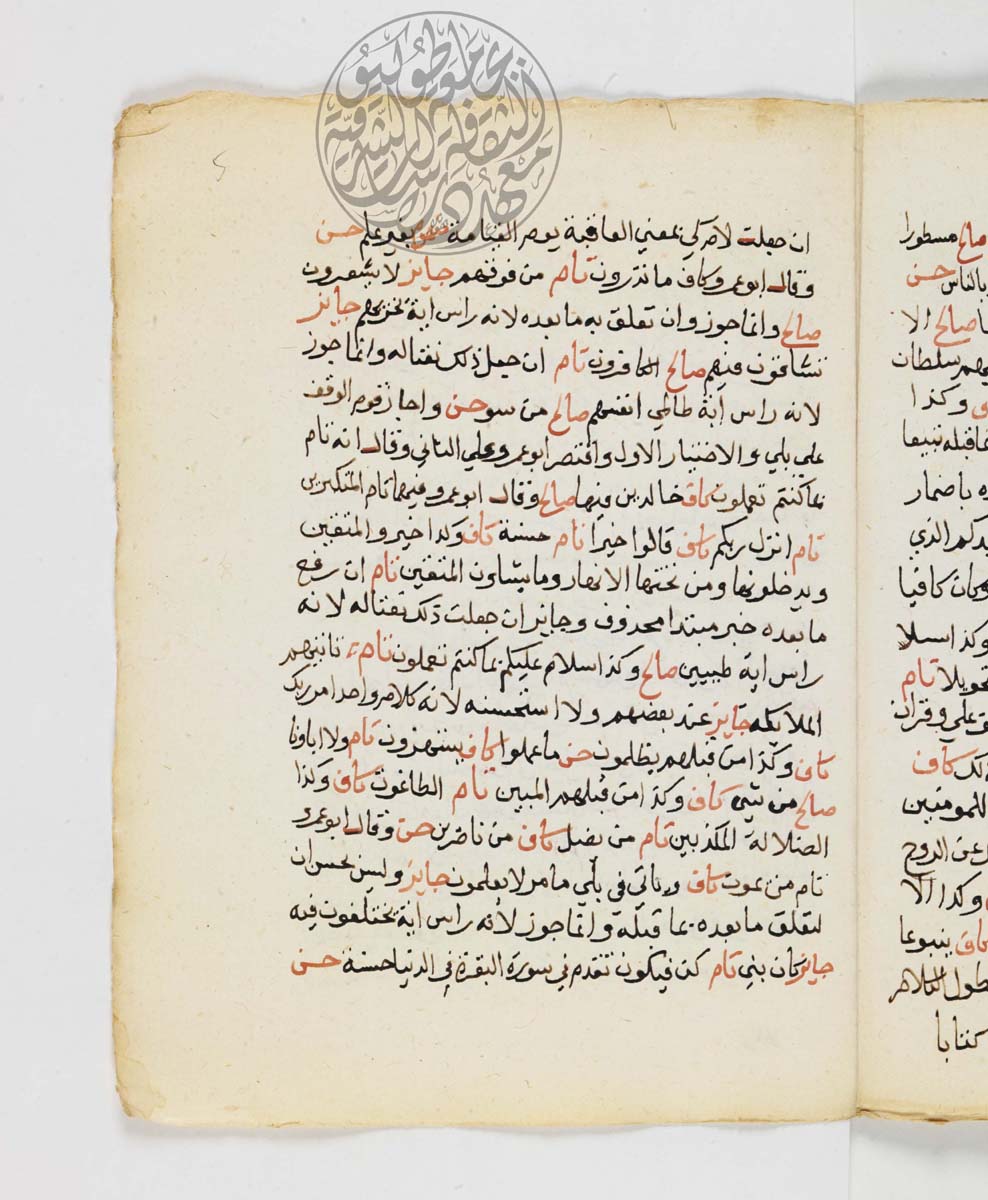 ان جعلت لام كي بمعني العاقبة يوم القيامة بغير علم حسن
وقال ابو عمرو كاف ما نذرون تام من فوقهم جايز لا يشعرون
صالح وانما جوز وان تعلق به ما بعده لانه راس اية يخزيهم جايز
تشاقون فيهم صالح الكافرون تام ان جعل ذلك نعتا له وانما جوز
لانه راس اية ظالمي انفسهم صالح من سو حسن واجاز قوم الوقف
علي بلي والاختيار الاول واقتصر ابو عمرو علي الثاني وقال انه تام
بما كنتم تعملون كاف خالدين فيها صالح وقال ابو عمرو فيهما تام المتكبرين
تام انزل ربكم كاف قالوا خيرا تام حسنة كاف وكذا خير والمتقين
ويدخلونها ومن تحتها الانهار وما يشاون المتقين تام ان رفع
ما بعده خبر مبتدا محذوف وجايز ان جعلت ذلك نعتا له لانه
راس اية طيبين صالح وكذا سلام عليكم بما كنتم تعملون تام تاتيهم
الملايكه جايز عند بعضهم ولا استحسنه لانه كلام واحد امر ربك
كاف وكذا من قبلهم يظلمون حسن ما عملوا كاف يستهزون تام ولا اباونا
صالح من شي كاف وكذا من قبلهم المبين تام الطاغوت كاف وكذا
الضلالة المكذبين تام من يضل كاف من ناصرين حسن وقال ابو عمرو
تام من يموت كاف وياتي في بلي ما مر لا يعلمون جايز وليس بحسن ان
لتعلق ما بعده بما قبله وانما جوز لانه راس اية يختلفون فيه
جايز كان بني تام كن فيكون تتقدم في سورة البقرة في الدنيا حسنة حسن
صالح مسطورا
بالناس حسن
صالح الا
سلطان
وكذا
ما قبله تبيعا
باضمار
الذي
وكان كافيا
وكذا سبيلا
تحويلا تام
علي وقران
كاف
للمومنين
عن الروح
وكذا الا
كاف ينبوعا
بطول الكلام
كتابا
معهد دراسات الثقافة الشرقية
بجامعة طوكيو